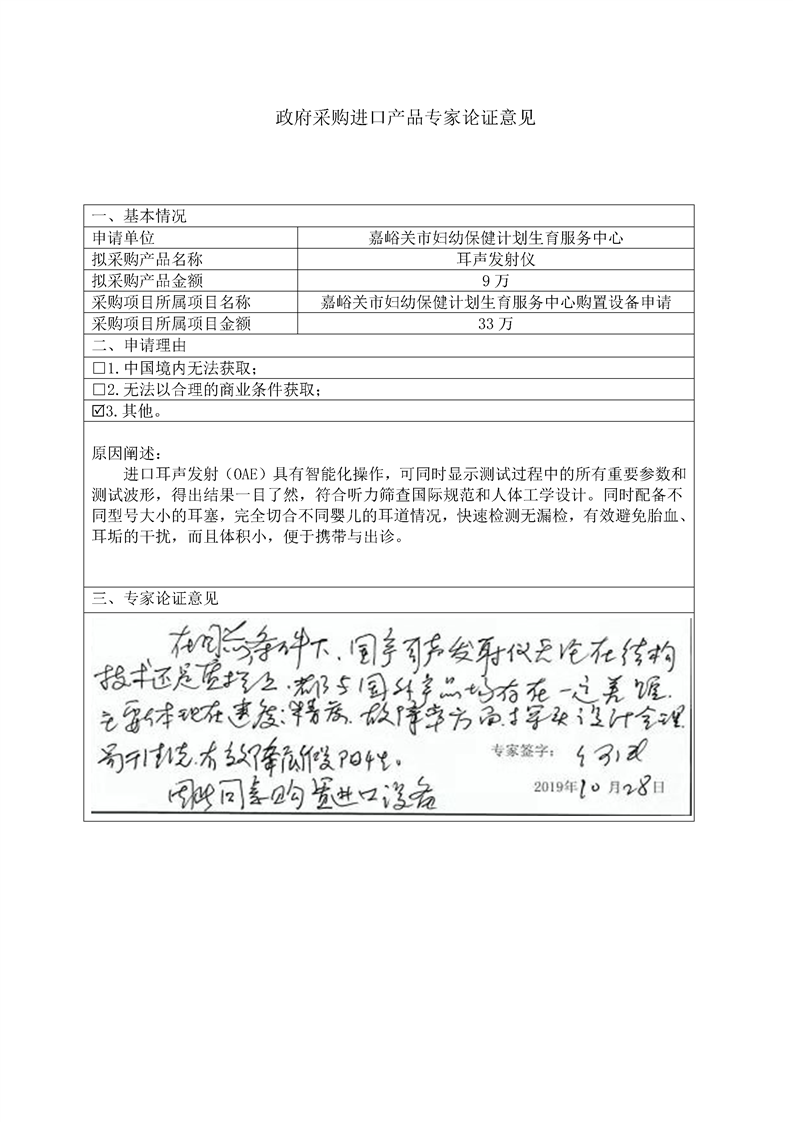 政府采购进口产品专家论证意见
一、基本情况
申请单位 嘉峪关市妇幼保健计划生育服务中心
拟采购产品名称 耳声发射仪
拟采购产品金额 9 万
采购项目所属项目名称 嘉峪关市妇幼保健计划生育服务中心购置设备申请
采购项目所属项目金额 33 万
二、申请理由
□1.中国境内无法获取；
□2.无法以合理的商业条件获取；
☑3.其他。
原因阐述：
进口耳声发射（OAE）具有智能化操作，可同时显示测试过程中的所有重要参数和
测试波形，得出结果一目了然，符合听力筛查国际规范和人体工学设计。同时配备不
同型号大小的耳塞，完全切合不同婴儿的耳道情况，快速检测无漏检，有效避免胎血、
耳垢的干扰，而且体积小，便于携带与出诊。
三、专家论证意见
在同等条件下，国产耳声发射仪无论在结构
技术还是质控上，都与国外产品均存在一定差距，
主要体现在速度、精度、故障率方面，探头设计合理
易于清洗，有效降低假阳性。
专家签字：
因此同意购置进口设备
2019年10月28日